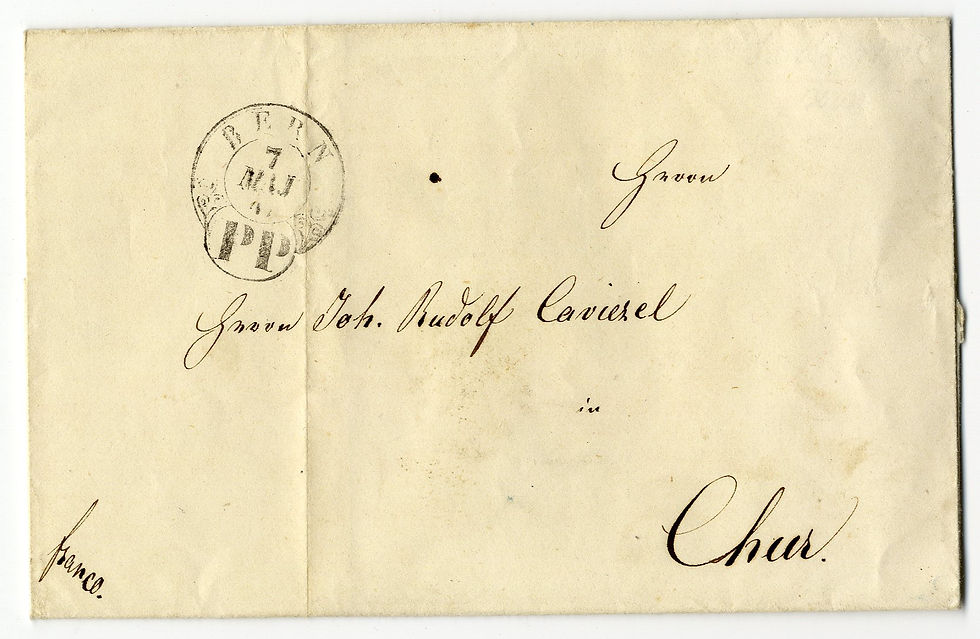 BERN
7
MAJ
PP
Herrn
Herrn Joh. Rudolf Caviezel
in
Chur.
franco.